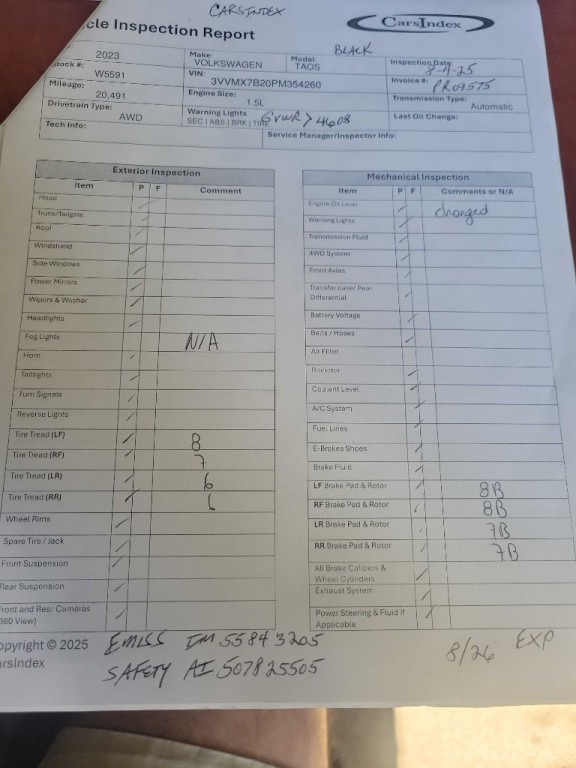 CARSINDEX
cle Inspection Report
CarsIndex
BLACK
2023
Make:
VOLKSWAGEN
Model
TAOS
Inspection Date:
8-4-25
Stock #:
W5591
VIN:
3VVMX7B20PM354260
Invoice #:
PRO9575
Mileage:
20,491
Engine Size:
1.5L
Transmission Type:
Automatic
Drivetrain Type:
AWD
Warning Lights
SEC | ABS | BRK | TIRE
GVWR > 4608
Last Oil Change:
Tech Info:
Service Manager/Inspector Info:
Exterior Inspection
Item P F Comment
Hood
Trunk/Tailgate
Roof
Windshield
Side Windows
Power Mirrors
Wipers & Washer
Headlights
Fog Lights N/A
Horn
Taillights
Turn Signals
Reverse Lights
Tire Tread (LF) 8
Tire Tread (RF) 7
Tire Tread (LR) 6
Tire Tread (RR) 6
Wheel Rims
Spare Tire / Jack
Front Suspension
Rear Suspension
Front and Rear Cameras
360 View)
Mechanical Inspection
Item P F Comments or N/A
Engine Oil Level changed
Warning Lights
Transmission Fluid
4WD System
Front Axles
Transfer case/ Rear
Differential
Battery Voltage
Belts / Hoses
Air Filter
Radiator
Coolant Level
A/C System
Fuel Lines
E-Brakes Shoes
Brake Fluid
LF Brake Pad & Rotor 8B
RF Brake Pad & Rotor 8B
LR Brake Pad & Rotor 7B
RR Brake Pad & Rotor 7B
All Brake Calipers &
Wheel Cylinders
Exhaust System
Power Steering & Fluid if
Applicable
opyright © 2025
arsIndex
EMISS IM 55843205
SAFETY AI 507825505
8/26 EXP